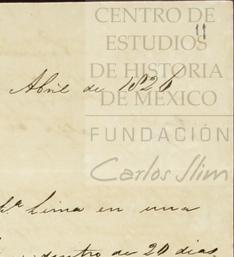 CENTRO DE
ESTUDIOS
DE HISTORIA
DE MÉXICO
FUNDACIÓN
Carlos Slim
11
Abril de 1826
Lima en una
dentro de 20 dias